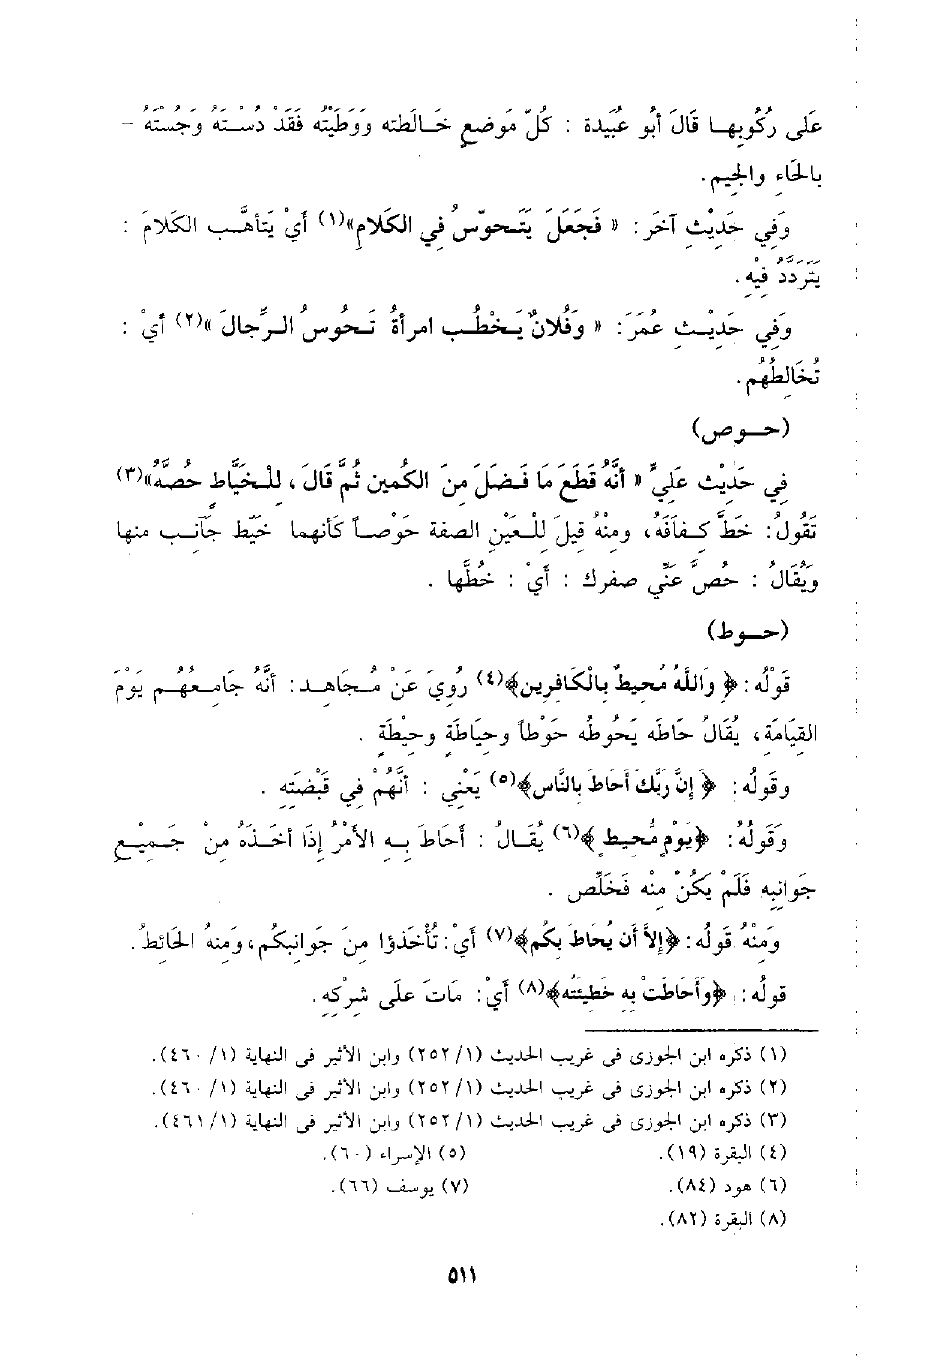 عَلى رُكُوبِهـا قَالَ أَبُو عُبَيدة : كُلّ مَوضعٍ خَـالَطته وَوَطِيْتُه فَقَدْ دُسـتَهُ وَجُسْتَهُ -
بالحَاءِ والجِيم.
وَفِي حَدِيْثٍ آخَرَ: « فَجَعَلَ يَتَـحوّسُ فِي الكَلامِ»(١) أَيْ يَتَأهَّـب الكَلامَ :
يَتَرَدَّدُ فِيْهِ.
وَفِي حَدِيْـثِ عُمَرَ: « وَفُلانٌ يَـخْطُـب امرأةُ تَـحُوسُ الـرِّجالَ »(٢) أيْ :
تُخَالِطُهُم.
(حـوص)
فِي حَدِيْثِ عَلِيٍّ « أَنَّهُ قَطَعَ مَا فَـضَلَ مِنَ الكُمين ثُمَّ قَالَ ، لِلـخَيَّاطِ حُصْهُ»(٣)
تَقُولُ: خَطَّ كـفـافَهُ، ومِنْهُ قِيلَ لِلْعَيْنِ الصفة حَوْصـاً كأنهما خَيِّط جَانِـب منها
وَيُقَالُ : حُصَّ عَنِّي صفرك : أَيْ : خُطَّها .
(حـوط)
قَوْلُه: ﴿ وَاللَّهُ مُحِيطٌ بِالْكَافِرِين﴾(٤) رُوِيَ عَنْ مُـجَاهـد: أَنَّهُ جَامِـعُهُـم يَوْمَ
القِيَامَةِ، يُقَالُ حَاطَه يَحُوطُه حَوْطاً وحِيَاطَةٍ وحِيْطَةٍ .
وقولُه: ﴿ إِنَّ رَبَّكَ أَحَاطَ بِالنَّاسِ﴾(٥) يَعْنِي : أَنَّهُمْ فِي قَبْضَتِه .
وَقَولُهُ: ﴿يَوْمٍ مُّحِيطٍ ﴾(٦) يُقَـالُ : أَحَاطَ بِـهِ الأَمْرُ إِذَا أَخَـذَهُ مِنْ جَـمِيْـعِ
جَوانِبِه فَلَمْ يَكُنْ مِنْه مَُخَلِّص .
وَمِنْهُ قَولُه: ﴿إِلاَّ أَن يُحَاطَ بِكُم﴾(٧) أَيْ: تُأْخَذوْا مِنَ جَوانِبكُم، وَمِنهُ الحَائِطُ.
قولُه: ﴿وَأَحَاطَتْ بِهِ خَطِيئَتُه﴾(٨) أَيْ: مَاتَ عَلَى شِرْكِهِ.
(١) ذكره ابن الجوزى فى غريب الحديث (٢٥٢/١) وابن الأثير فى النهاية (٤٦٠/١).
(٢) ذكره ابن الجوزى فى غريب الحديث (٢٥٢/١) وابن الأثير فى النهاية (٤٦٠/١).
(٣) ذكره ابن الجوزى فى غريب الحديث (٢٥٢/١) وابن الأثير فى النهاية (٤٦١/١).
(٤) البقرة (١٩). (٥) الإسراء (٦٠).
(٦) هود (٨٤). (٧) يوسف (٦٦).
(٨) البقرة (٨٢).
٥١١